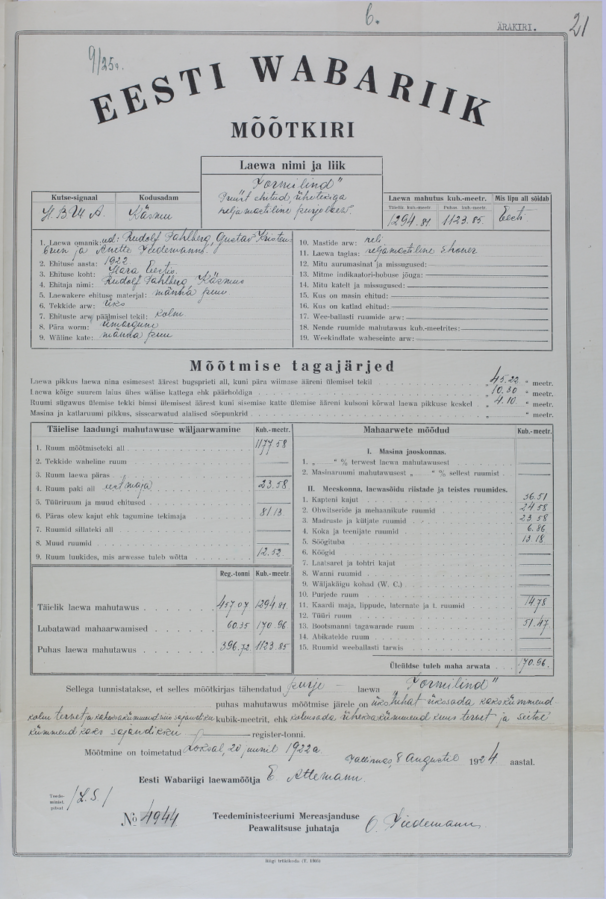 6.
ÄRAKIRI.
21
9/25a.
EESTI WABARIIK
MÕÕTKIRI
Laewa nimi ja liik
"Tormilind"
Puust ehitud, ühetekiga
neljamastiline purjelaev.
Kutse-signaal
Kodusadam
Käsmu
Laewa mahutus kub.-meetr.
Täielik kub.-meetr.
Puhas kub.-meetr.
1294.81
1123.85
Mis lipu all sõidab
Eesti
1. Laewa omanikud: Rudolf Tahlberg, Gustav Kristenbrun ja Anette Tiedemann.
2. Ehituse aasta: 1922
3. Ehituse koht: Eestis.
4. Ehitaja nimi: Rudolf Tahlberg Käsmus
5. Laewakere ehituse materjal: männa puu
6. Tekkide arw: üks
7. Ehituste arw päälmisel tekil: kolm
8. Pära worm: ümargune
9. Wäline kate: männa puu
10. Mastide arw: neli
11. Laewa taglas: neljamastiline shoner
12. Mitu aurumasinat ja missugused:
13. Mitme indikaatori-hobuse jõuga:
14. Mitu katelt ja missugused:
15. Kus on masin ehitud:
16. Kus on katlad ehitud:
17. Wee-ballasti ruumide arw:
18. Nende ruumide mahutawus kub.-meetrites:
19. Weekindlate waheseinte arw:
Mõõtmise tagajärjed
Laewa pikkus laewa nina esimesest äärest bugspriti all, kuni pära wiimase ääreni ülemisel tekil 45.22 meetr.
Laewa kõige suurem laius ühes wälise kattega ehk päärholdiga 10.50 meetr.
Ruumi sügawus ülemise tekki bimsi ülemisest äärest kuni sisemise katte ülemise ääreni kulseni kõrwal laewa pikkuse keskel 4.10 meetr.
Masina ja katlaruumi pikkus, sissearwatud alalised söepunkrid meetr.
Täielise laadungi mahutawuse wäljaarwamine
Kub.-meetr.
1. Ruum mõõtmiseteki all 1177.58
2. Tekkide waheline ruum
3. Ruum laewa päras
4. Ruum paki all 23.58
5. Tüüriruum ja muud ehitused
6. Päras olew kajut ehk tagumine tekimaja 81.13
7. Ruumid sillateki all
8. Muud ruumid
9. Ruum luukides, mis arwesse tuleb wõtta 12.52
Reg.-tonni
Kub.-meetr.
Täielik laewa mahutawus 457.07 1294.81
Lubatawad mahaarwamised 60.35 170.96
Puhas laewa mahutawus 396.72 1123.85
Mahaarwete mõõdud
Kub.-meetr.
I. Masina jaoskonnas.
1. „ “ % terwest laewa mahutawusest
2. Masinaruumi mahutawusest „ “ % sellest ruumist
II. Meeskonna, laewasõidu riistade ja teistes ruumides.
1. Kapteni kajut 36.51
2. Ohwitseride ja mehaanikute ruumid 24.58
3. Madruste ja kütjate ruumid 23.58
4. Koka ja teenijate ruumid 6.86
5. Söögituba 13.18
6. Köögid
7. Laatsaret ja tohtri kajut
8. Wanni ruumid
9. Wäljakäigu kohad (W. C.)
10. Purjede ruum
11. Kaardi maja, lippude, laternate ja t. ruumid 14.78
12. Tüüri ruum
13. Bootsmanni tagawarade ruum 51.47
14. Abikatelde ruum
15. Ruumid weeballasti tarwis
Üleüldse tuleb maha arwata 170.96.
Sellega tunnistatakse, et selles mõõtkirjas tähendatud purje- laewa "Tormilind"
puhas mahutawus mõõtmise järele on üks tuhat ükssada, kakskümmend
kolm tervet ja kaheksakümmend viis sajandikku kubik-meetrit, ehk kolmsada, üheksakümmend kuus tervet ja seitse
kümmend kaks sajandikku register-tonni.
Mõõtmine on toimetatud Loksal, 20 juunil 1922a
Tallinnas, 8 Augustil 1924 aastal.
Eesti Wabariigi laewamõõtja E. Attemann.
Teede-
minist.
pitsat.
/L.S/
№ 4944
Teedeministeeriumi Mereasjanduse
Peawalitsuse juhataja
O. Tiedemann.